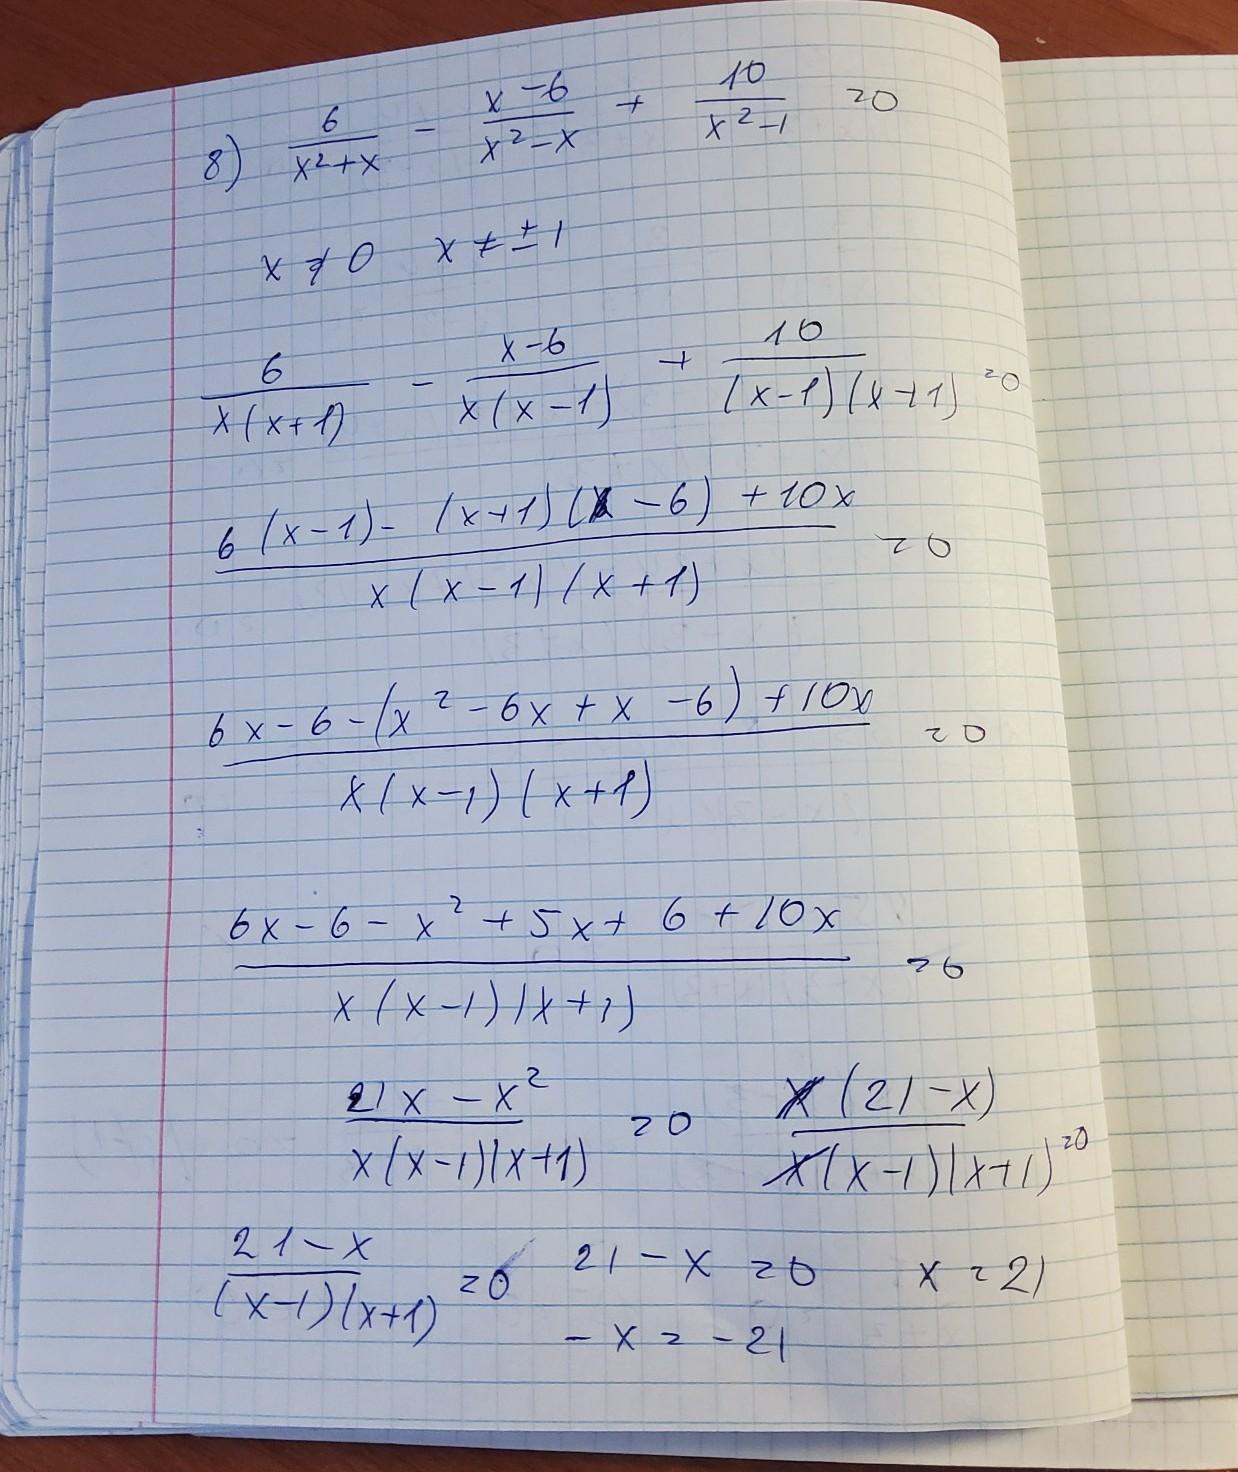 8) 6/(x²+x) - (x-6)/(x²-x) + 10/(x²-1) = 0
x ≠ 0 x ≠ ±1
6/(x(x+1)) - (x-6)/(x(x-1)) + 10/((x-1)(x+1)) = 0
(6(x-1) - (x+1)(x-6) + 10x)/(x(x-1)(x+1)) = 0
(6x-6-(x²-6x+x-6)+10x)/(x(x-1)(x+1)) = 0
(6x-6-x²+5x+6+10x)/(x(x-1)(x+1)) = 0
(21x-x²)/(x(x-1)(x+1)) = 0 x(21-x)/(x(x-1)(x+1)) = 0
(21-x)/((x-1)(x+1)) = 0 21-x = 0 x = 21
-x = -21